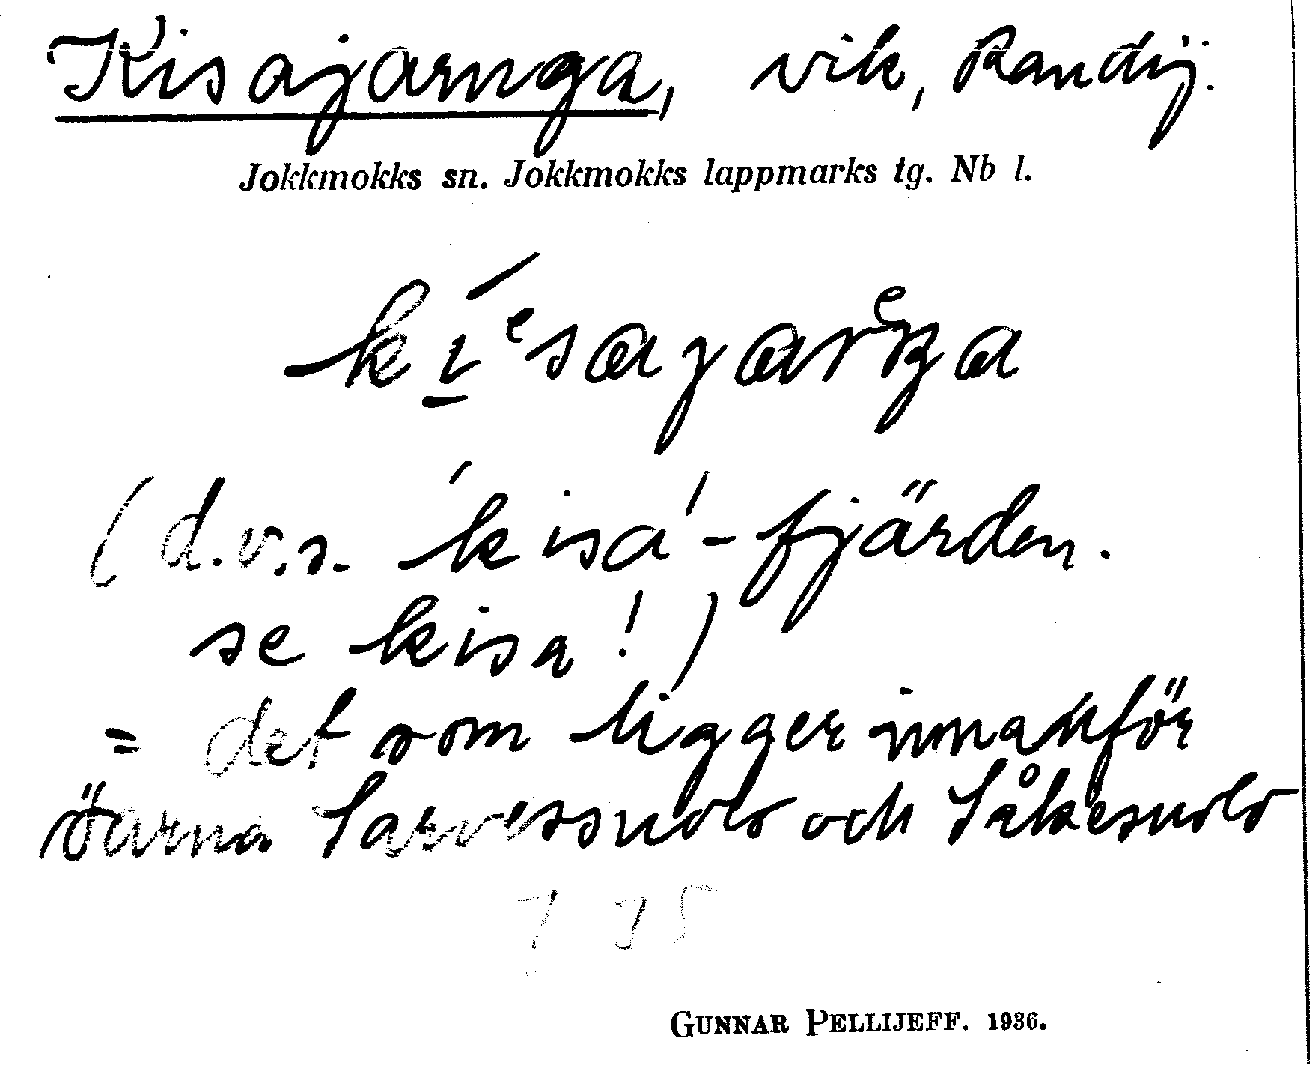 Kisajarnga, vik, Randij.
Jokkmokks sn. Jokkmokks lappmarks tg. Nb l.
(d.v.s. kisá-fjärden.
se kisa!)
= det som ligger innanför
öarna Sarvessuolo och Såkesuolo
GUNNAR PELLIJEFF. 1936.